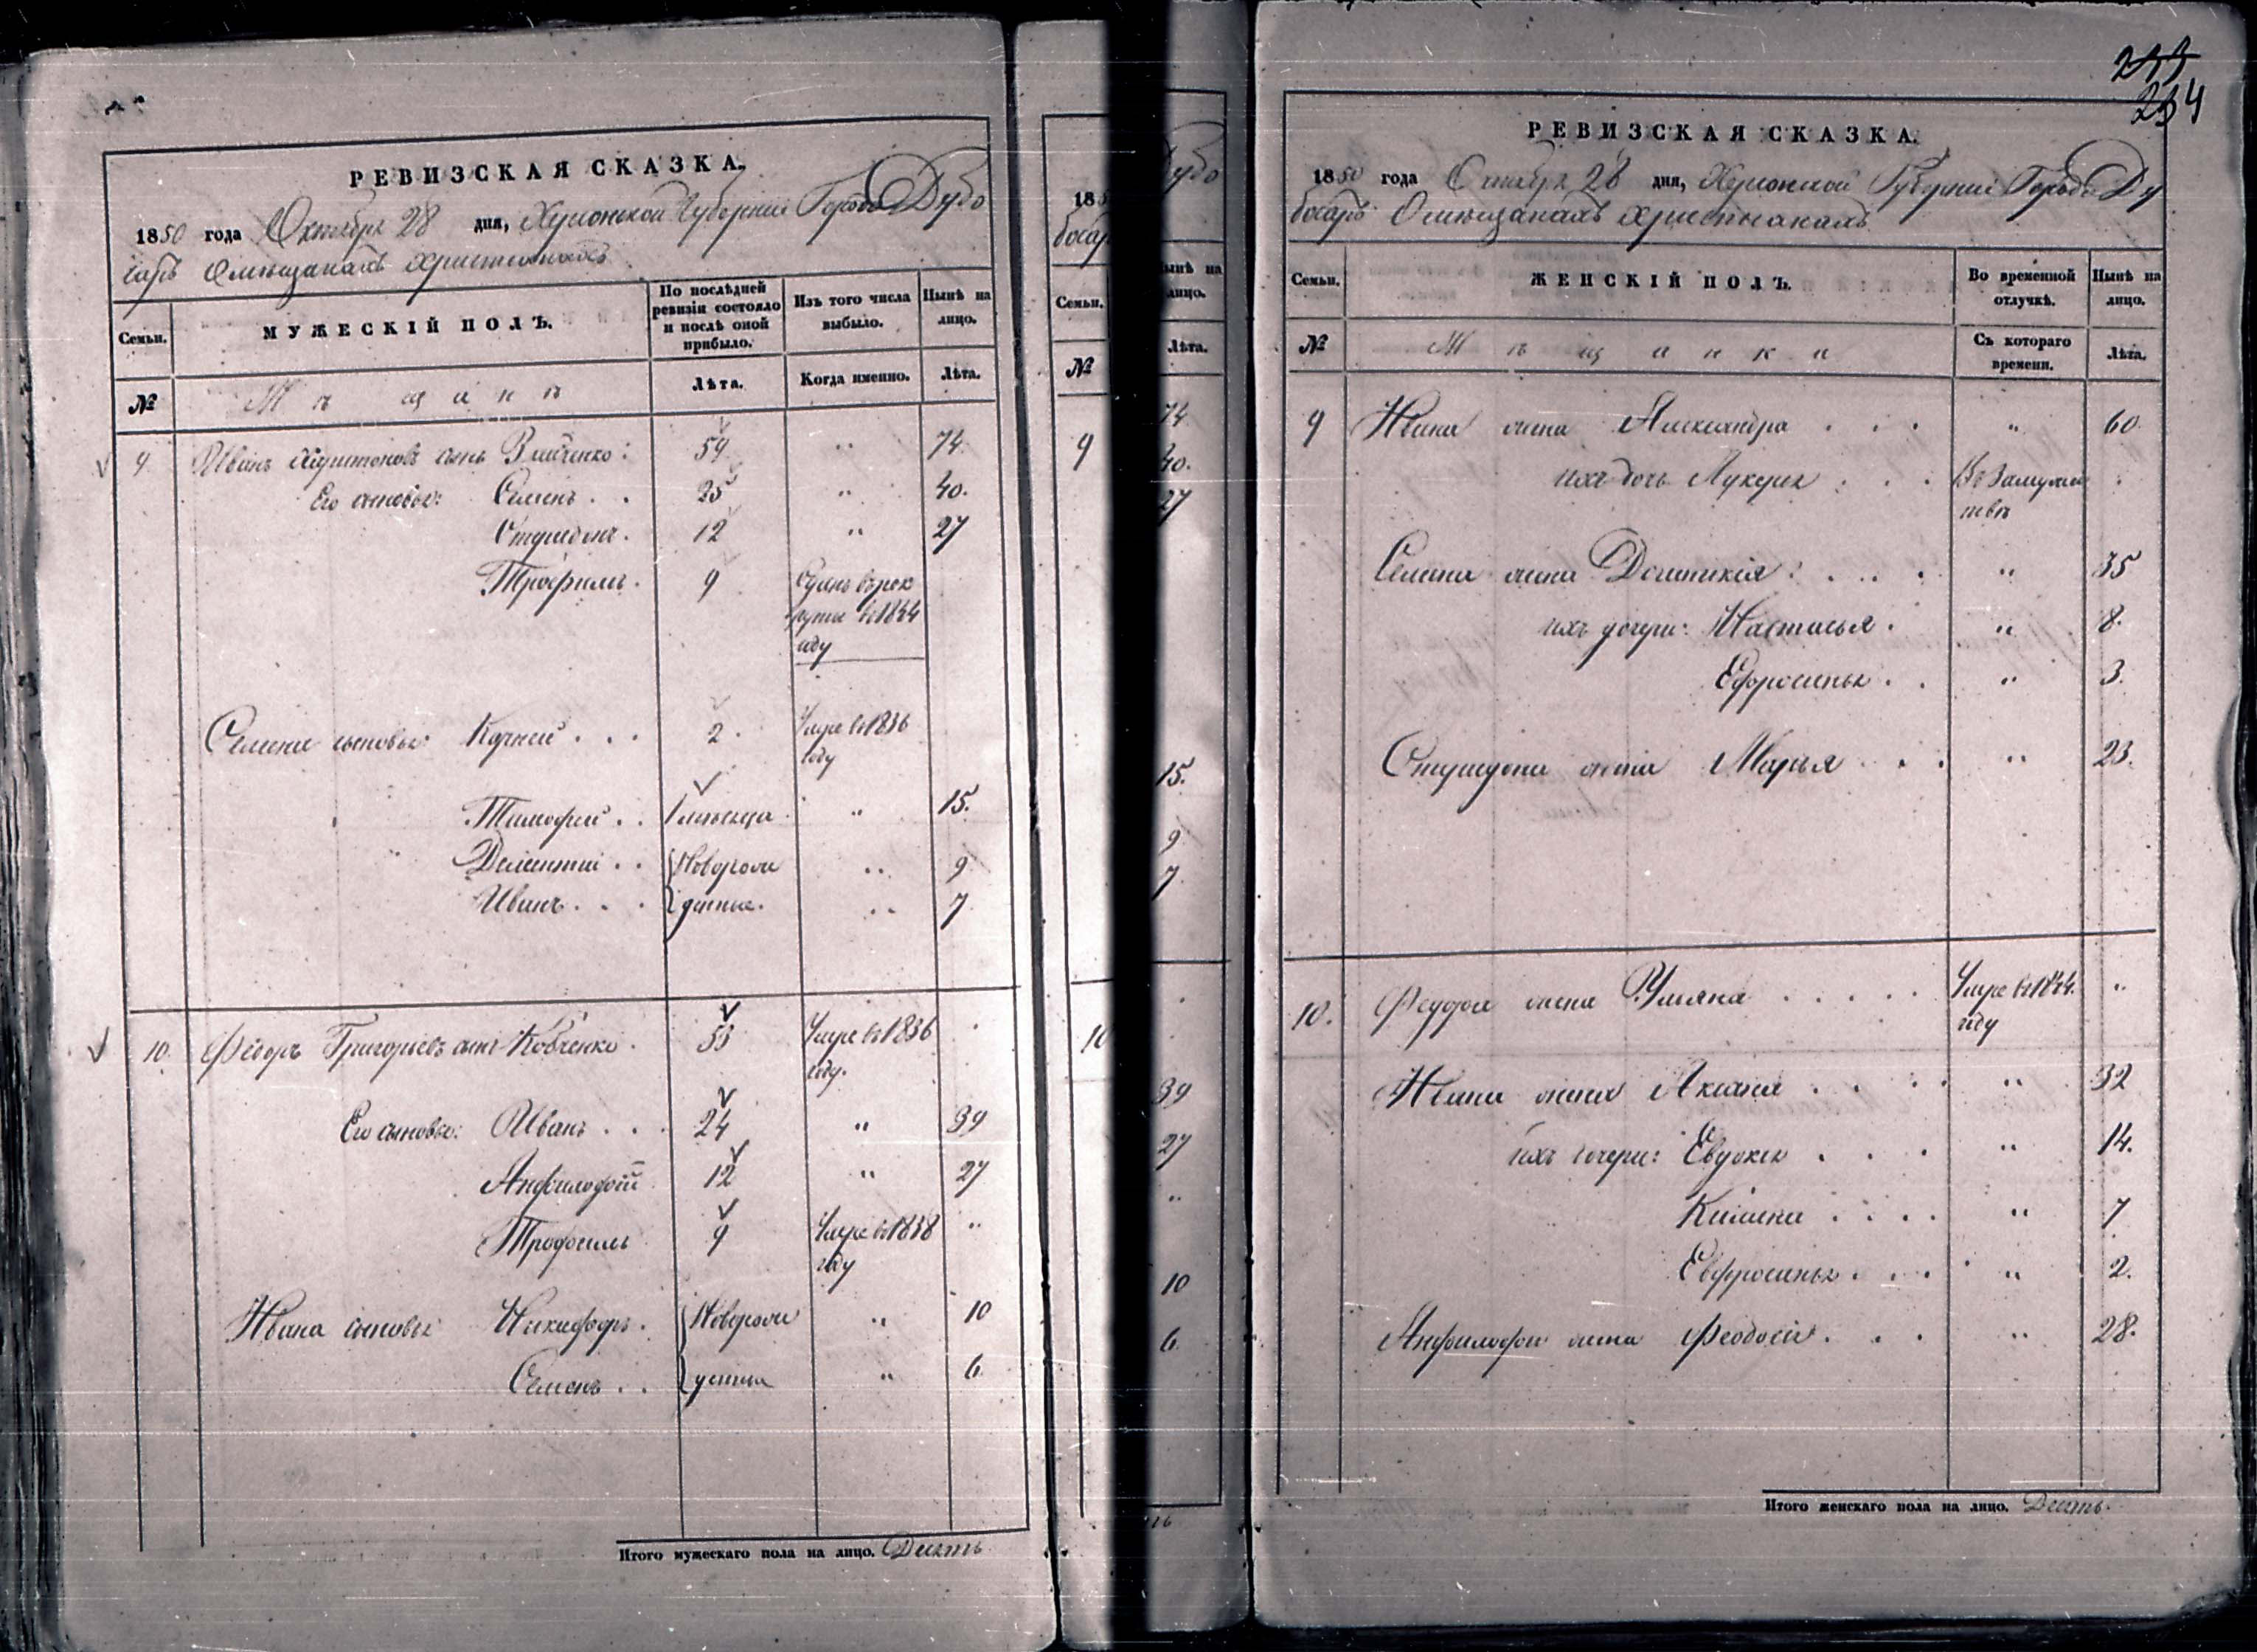 РЕВИЗСКАЯ СКАЗКА.
1850 года Октября 28 дня, Херсонской Губернии Города Дубо
саръ о мѣщанахъ христианахъ
Семьи. МУЖЕСКІЙ ПОЛЪ. По послѣдней ревизіи состояло и послѣ оной прибыло. Изъ того числа выбыло. Нынѣ на лицо.
№ Мѣщане Лѣта. Когда именно. Лѣта.
9. Иванъ сынъ 59 " 74.
Его сыновья: Семенъ . . 25 " 40.
Спиридонъ. 12 " 27
Трофимъ. 9 Сданъ въ рек
руты въ 1844
году
Семена сыновья: Корней . . . 2. Умре въ 1836
году
Тимофей . . 1 мѣсяца " 15.
Дементий . . Новорож " 9
Иванъ . . . денные. " 7.
10. Федоръ Григорьевъ сынъ Ковченко. 55 Умре въ 1836
году.
Его сыновья: Иванъ . . . 24 " 39
Анфилофий 12 " 27
Трофимъ 9 Умре въ 1838 "
году
Ивана сыновья Никифоръ. Новорож " 10
Семенъ . . денные " 6.
Итого мужескаго пола на лицо. Десять
185
босар
Семьи.
№
9
10
Дубо
ынѣ на
лицо.
Лѣта.
74
40.
27
15.
9
7
39
27
"
10
6.
233
234
РЕВИЗСКАЯ СКАЗКА.
1850 года Октября 28 дня, Херсонской Губернии Города Ду
босаръ о мѣщанахъ христианахъ
Семьи. ЖЕНСКІЙ ПОЛЪ. Во временной отлучкѣ. Нынѣ на лицо.
№ Мѣщанки Съ котораго времени. Лѣта.
9 Ивана жена Александра . . . " 60
ихъ дочь Лукерья . . . Въ замуже
твѣ
Семена жена Домникия . . . " 35
ихъ дочери: Настасья . " 8.
Ефросинья . . " 3.
Спиридона жена Марья . . . " 23.
10. Федора жена Ульяна . . . . . Умре въ 1844. "
году
Ивана жена Аксанья . . . . " 32
ихъ дочери: Евдокия . . . " 14.
. . . . " 7
Евфросинья . . . . " 2.
Анфилофия жена Феодосия . . . " 28.
Итого женскаго пола на лицо. Десять.